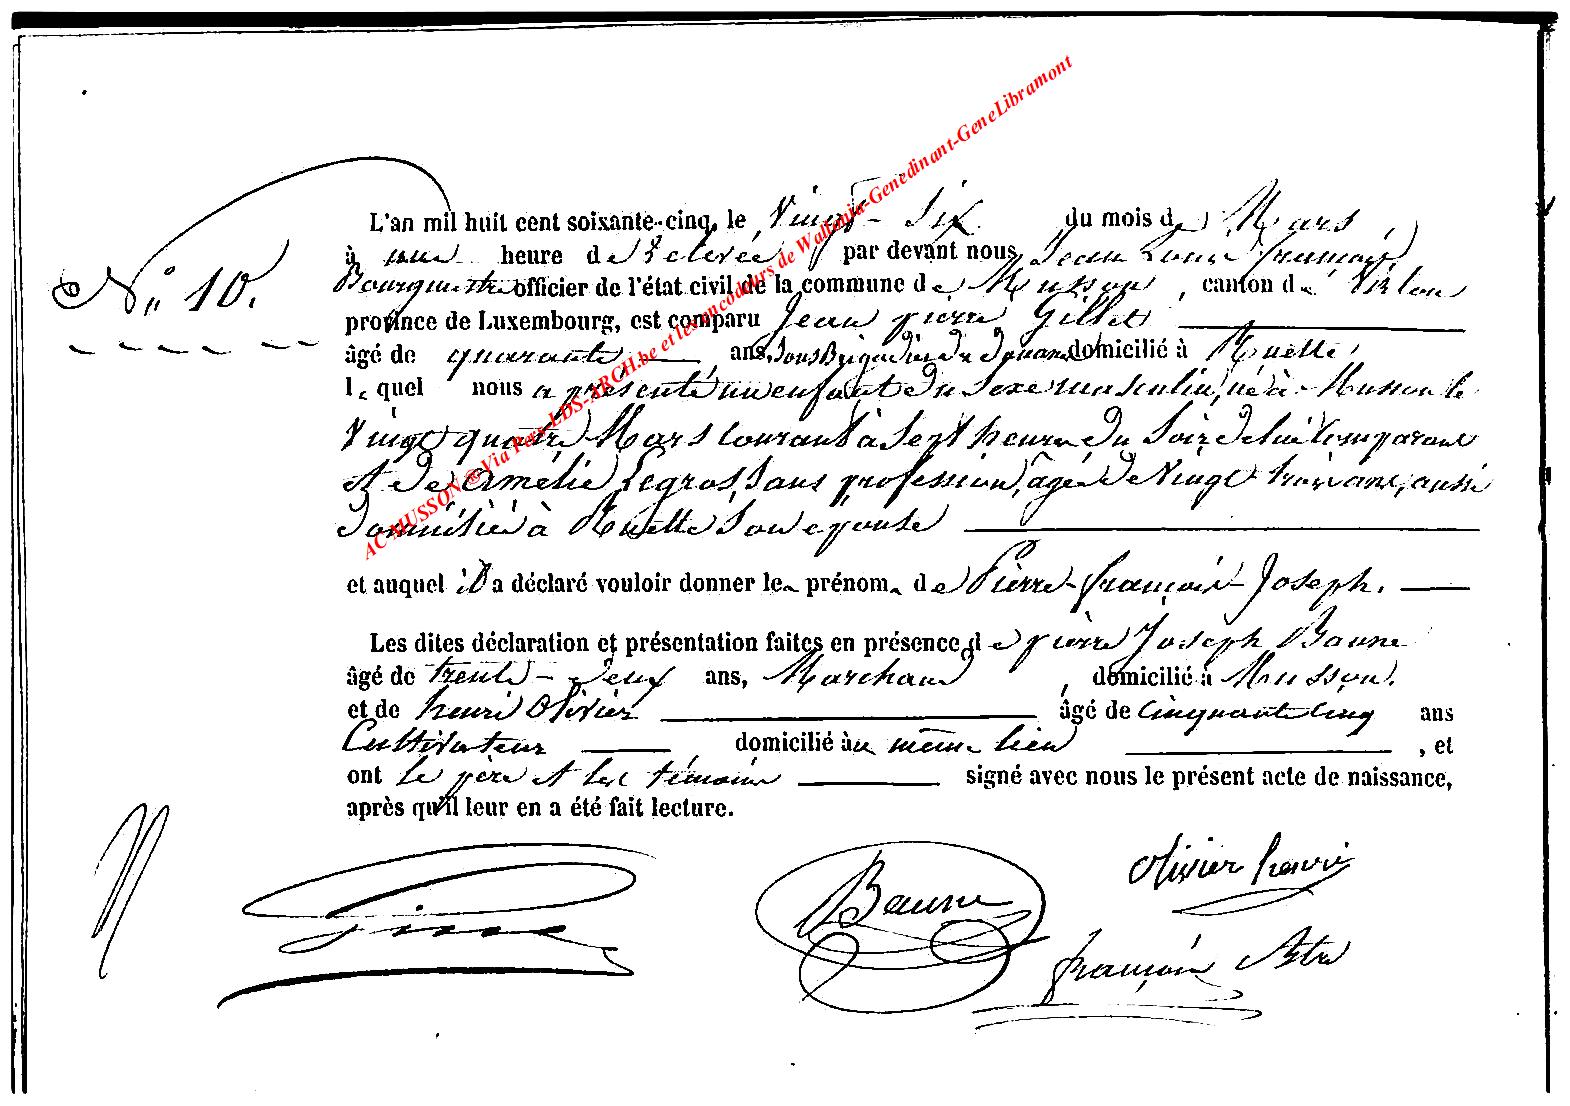 L'an mil huit cent soixante-cinq, le Vingt-Six du mois de Mars,
à une heure de Relevée par devant nous Jean Louis françois
N° 10.
officier de l'état civil de la commune de Musson, canton de Virton
province de Luxembourg, est comparu Jean pierre Gillet
âgé de quarante ans, Sous Brigadier de Douane domicilié à Ruette,
lequel nous a présenté un enfant du sexe masculin, né à Musson le
Vingt quatre Mars courant à sept heures du Soir de lui comparant
et de Amélie Legros, Sans profession, agée de Vingt trois ans, aussi
domiciliée à Ruette Son épouse
et auquel il a déclaré vouloir donner le prénom de Pierre-françois-Joseph.
Les dites déclaration et présentation faites en présence de pierre Joseph Baune
âgé de trente-deux ans, Marchand, domicilié à Musson.
et de henri Olivier âgé de cinquante cinq ans
Cultivateur domicilié au même lieu, et
ont le père et les témoins signé avec nous le présent acte de naissance,
après qu'il leur en a été fait lecture.
Baune
olivier henri
françois
AC MUSSON @ Via Fam-LDS-ARCH.be et les encodeurs de Wallonia-Genedinant-GeneLibramont